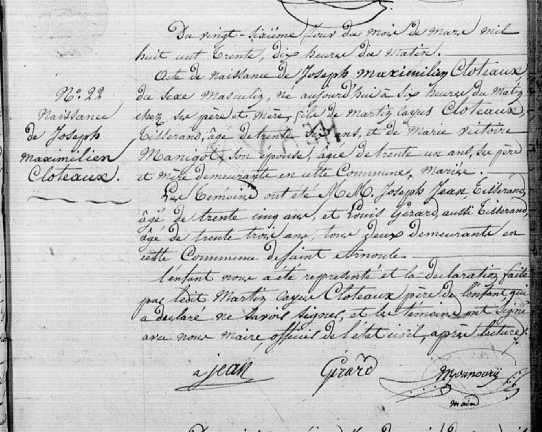 Du vingt-sixième jour du mois de mars mil
huit cent trente, dix heures du matin.
Acte de naissance de Joseph maximilien Cloteaux,
du sexe masculin, né aujourd'hui à six heures du matin
chez ses père et mère, fils de martin Cloteaux
tisserand, âgé de trente ans, et de Marie victoire
son épouse, agée de trente un ans, ses père
et mère demeurants en cette Commune, mariés.
Les témoins ont été M.M. Joseph Jean tisserand
âgé de trente cinq ans, et Louis Gérard aussi tisserand
âgé de trente trois ans, tous deux demeurants en
cette Commune de saint Arnould
l'enfant nous a été représenté et la déclaration faite
par ledit Martin Cloteaux père de l'enfant qui
a déclaré ne savoir signer, et les témoins ont signé
avec nous maire, officier de l'état civil, après lecture.
N.o 22
Naissance
de Joseph
maximilien
Cloteaux.
jean
Gérard
maire